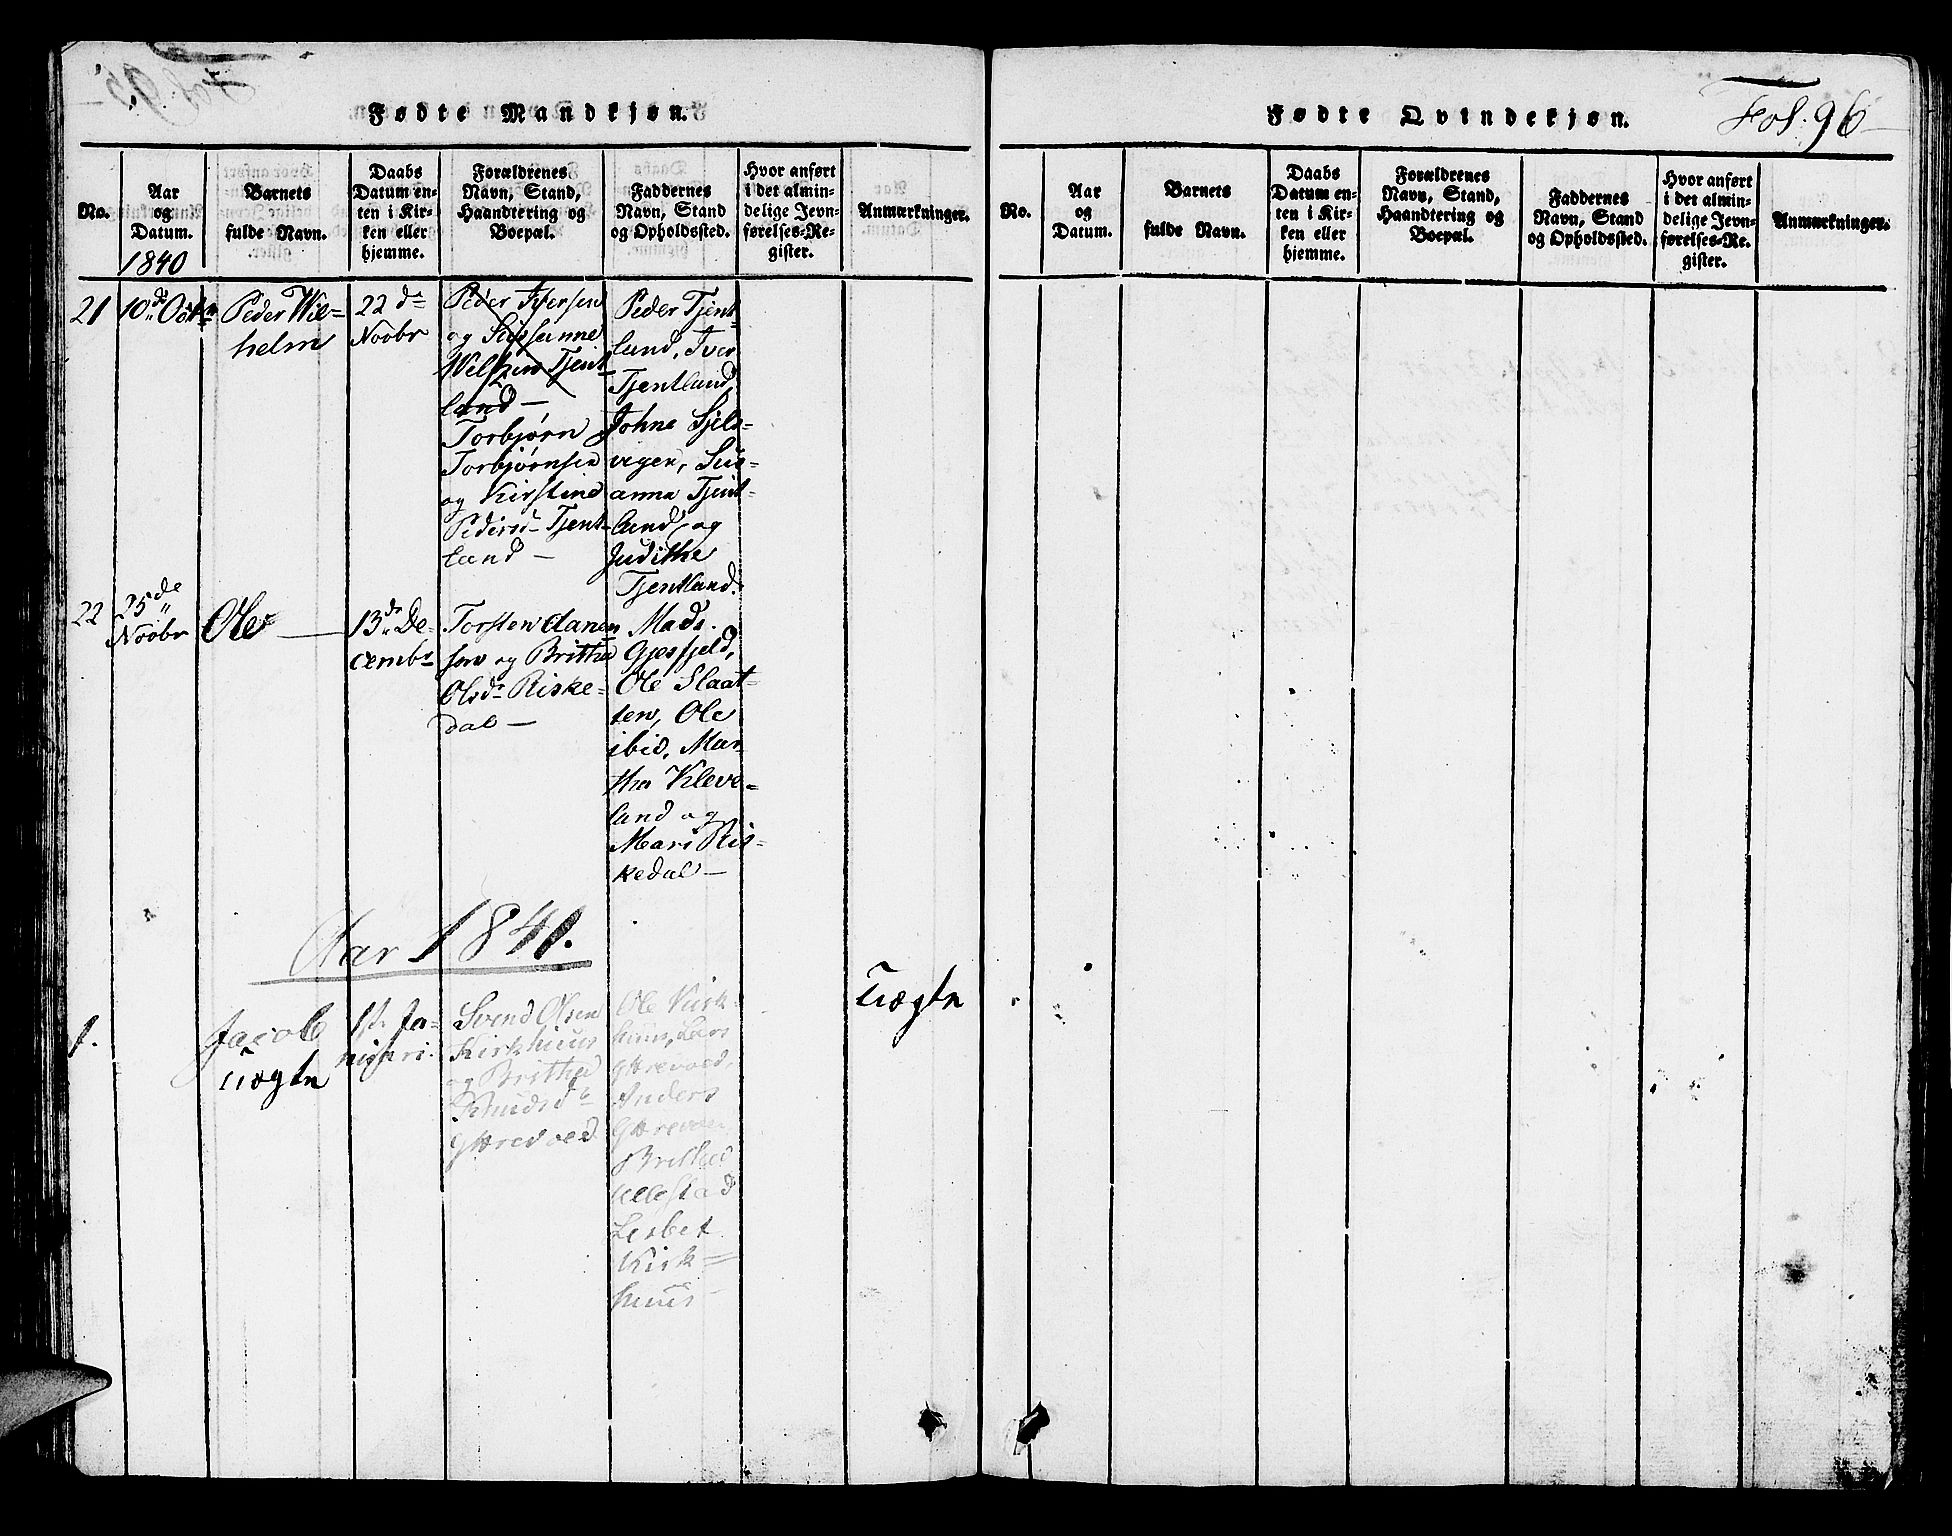 Fol. 96
Fødte Mandkjøn.
No.
Aar
og
Datum.
1840
Barnets
fulde Navn.
Daabs
Datum en-
ten i Kir-
ken eller
hjemme.
Forældrenes
Navn, Stand,
Haandtering og
Boepæl.
Faddernes
Navn, Stand
og Opholdssted.
Hvor anført
i det almin-
delige Jevn-
førelses-Re-
gister.
Anmærkninger.
21
10de Octbr
Peder Wil-
helm
22de
Novbr
Peder Iversen
og Sussanne
Tjent
land —
Torbjørn
Torbjørnsen
og Kirstine
Pedersd Tjent-
land —
Peder Tjent-
land, Iver
Tjentland,
Johne Sjels-
vigen, Sus-
anna Tjent-
land og
Judithe
Tjentland.
22
25de
Novbr
Ole —
13de De-
cembr
Torsten Aanen
sen og Britha
Olsdr Riske-
dal —
Mads
Gjesfjeld,
Ole Slaat-
ten, Ole
ibid, Mar-
tha Kleve-
land og
Mari Ris-
kedal —
Aar 1841.
1.
Jacob
uægte
1st Ja-
nuari
Svend Olsen
Kirkhuus
og Britha
Knudsd
Ole Kirk-
huus, Lars
Anders
Britha
Ullestad
Lisbet
Kirk-
huus
uægte
Fødte Qvindekjøn.
No.
Aar
og
Datum.
Barnets
fulde Navn.
Daabs
Datum en-
ten i Kir-
ken eller
hjemme.
Forældrenes
Navn, Stand,
Haandtering og
Boepæl.
Faddernes
Navn, Stand
og Opholdssted.
Hvor anført
i det almin-
delige Jevn-
førelses-Re-
gister.
Anmærkninger.